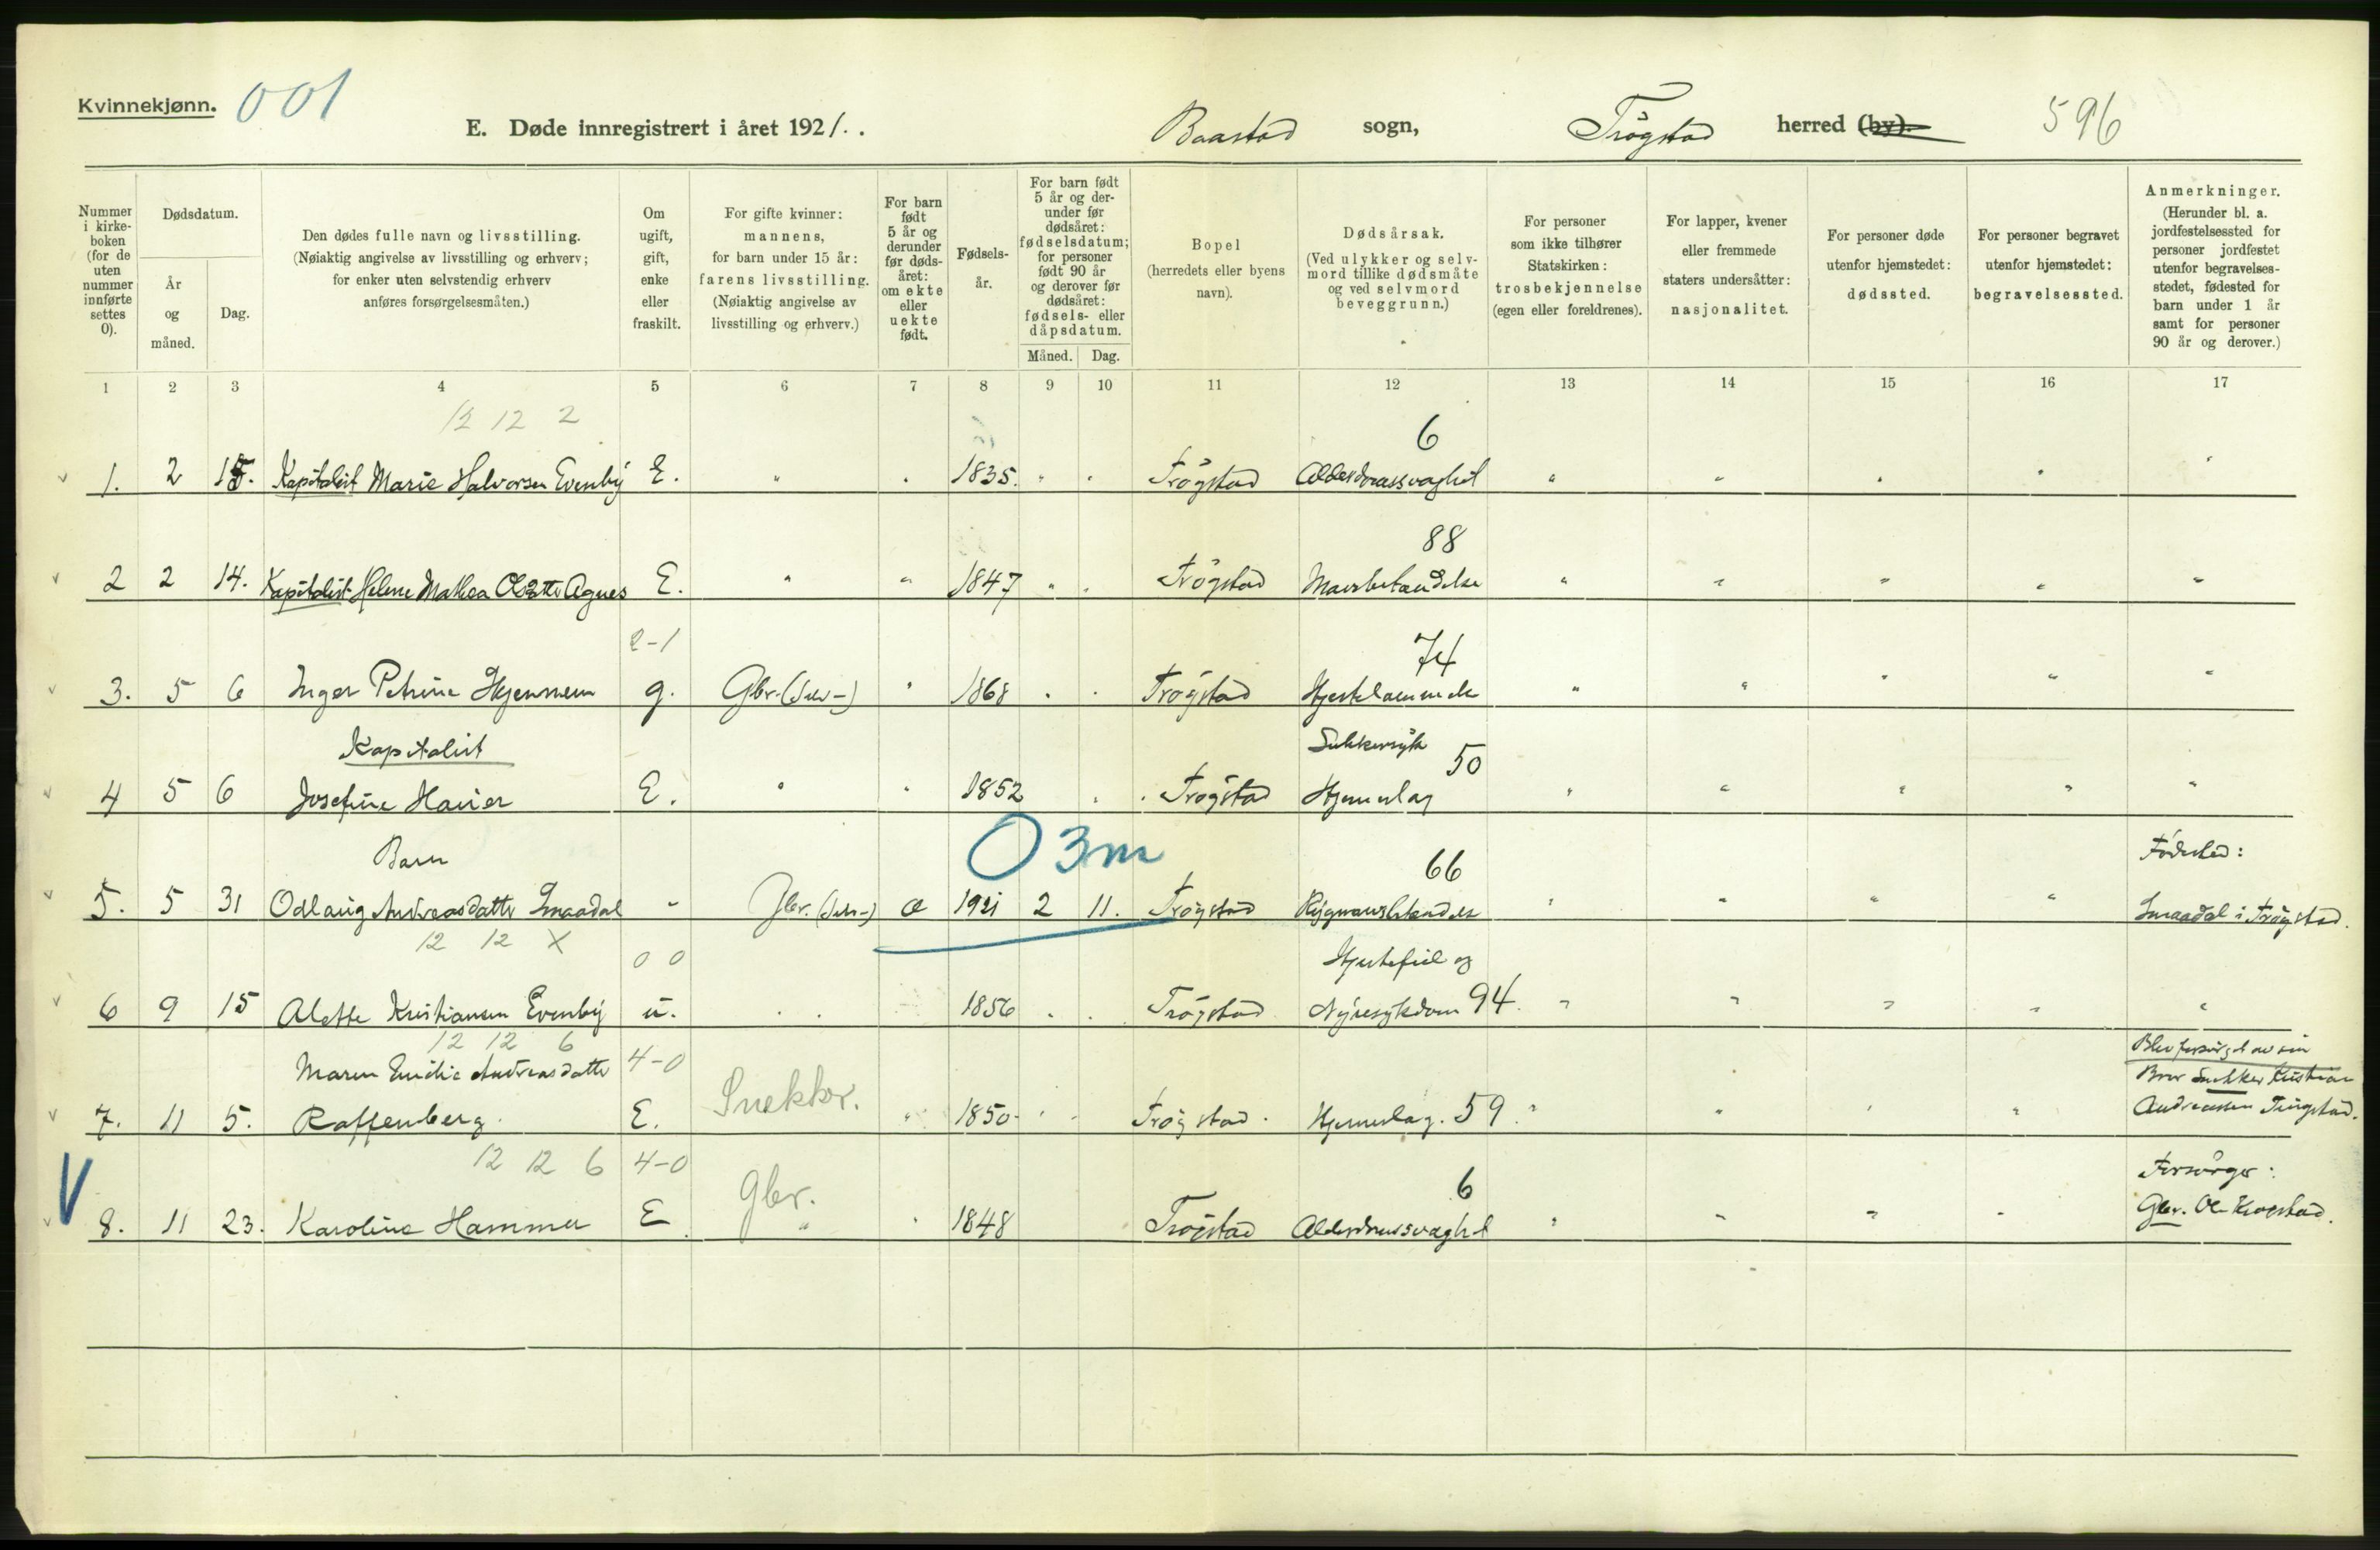 Kvinnekjønn. 001
E. Døde innregistrert i året 1921. . Baastad sogn, Trøgstad herred (by). 596
Nummer i kirke-boken (for de uten nummer innførte settes 0).
Dødsdatum.
År og måned.
Dag.
Den dødes fulle navn og livsstilling. (Nøiaktig angivelse av livsstilling og erhverv; for enker uten selvstendig erhverv anføres forsørgelsesmåten.)
Om ugift, gift, enke eller fraskilt.
For gifte kvinner: mannens, for barn under 15 år: farens livsstilling. (Nøiaktig angivelse av livsstilling og erhverv.)
For barn født 5 år og derunder før døds-året: om ekte eller uekte født.
Fødsels-år.
For barn født 5 år og der-under før dødsåret: fødselsdatum; for personer født 90 år og derover før dødsåret: fødsels- eller dåpsdatum.
Måned. Dag.
Bopel (herredets eller byens navn).
Dødsårsak. (Ved ulykker og selv-mord tillike dødsmåte og ved selvmord beveggrunn.)
For personer som ikke tilhører Statskirken: trosbekjennelse (egen eller foreldrenes).
For lapper, kvener eller fremmede staters undersåtter: nasjonalitet.
For personer døde utenfor hjemstedet: dødssted.
For personer begravet utenfor hjemstedet: begravelsessted.
Anmerkninger. (Herunder bl. a. jordfestelsessted for personer jordfestet utenfor begravelses-stedet, fødested for barn under 1 år samt for personer 90 år og derover.)
1 2 3 4 5 6 7 8 9 10 11 12 13 14 15 16 17
12 12 2 6
1. 2 15. Kapitalist Marie Halvorsen Evenby E. " 1835. " Trøgstad Alderdomssvaghet "
88
2 2 14. Kapitalist Helene Mathea Olsdtr Agnes E. " " 1847 " Trøgstad Mavebetændelse "
2-1 74
3. 5 6 Inger Petrine Hjemmen g. Gbr. (Selv-) " 1868 Trøgstad Hjertelammelse "
Kapitalist Sukkersyke 50
4 5 6 Josefine Havier E. " 1852 Trøgstad Hjerneslag "
Barn 0 3m 66 Fødested:
5. 5 31 Odlaug Andreasdatter Smaadal " Gbr. (Selv-) e 1921 2 11. Trøgstad Rygmavsbetændelse " Smaadal i Trøgstad.
12 12 X 0 0 Hjertefeil og
6 9 15 Alette Kristiansen Evenby u. 1856 Trøgstad Nyresykdom 94. "
12 12 6 4-0 Blev forsørget av sin
Maren Emilie Andreasdatter Bror Snekker Kristian
7. 11 5. Raffenberg. E. Snekker. " 1850 Trøgstad. Hjerneslag. 59. " Andreassen Tingstad.
12 12 6 4-0 Gbr. 6 Forsørger:
V 8. 11 23. Karoline Hammer E. " 1848 Trøgstad Alderdomssvaghet " Gbr. Ole Krogstad.